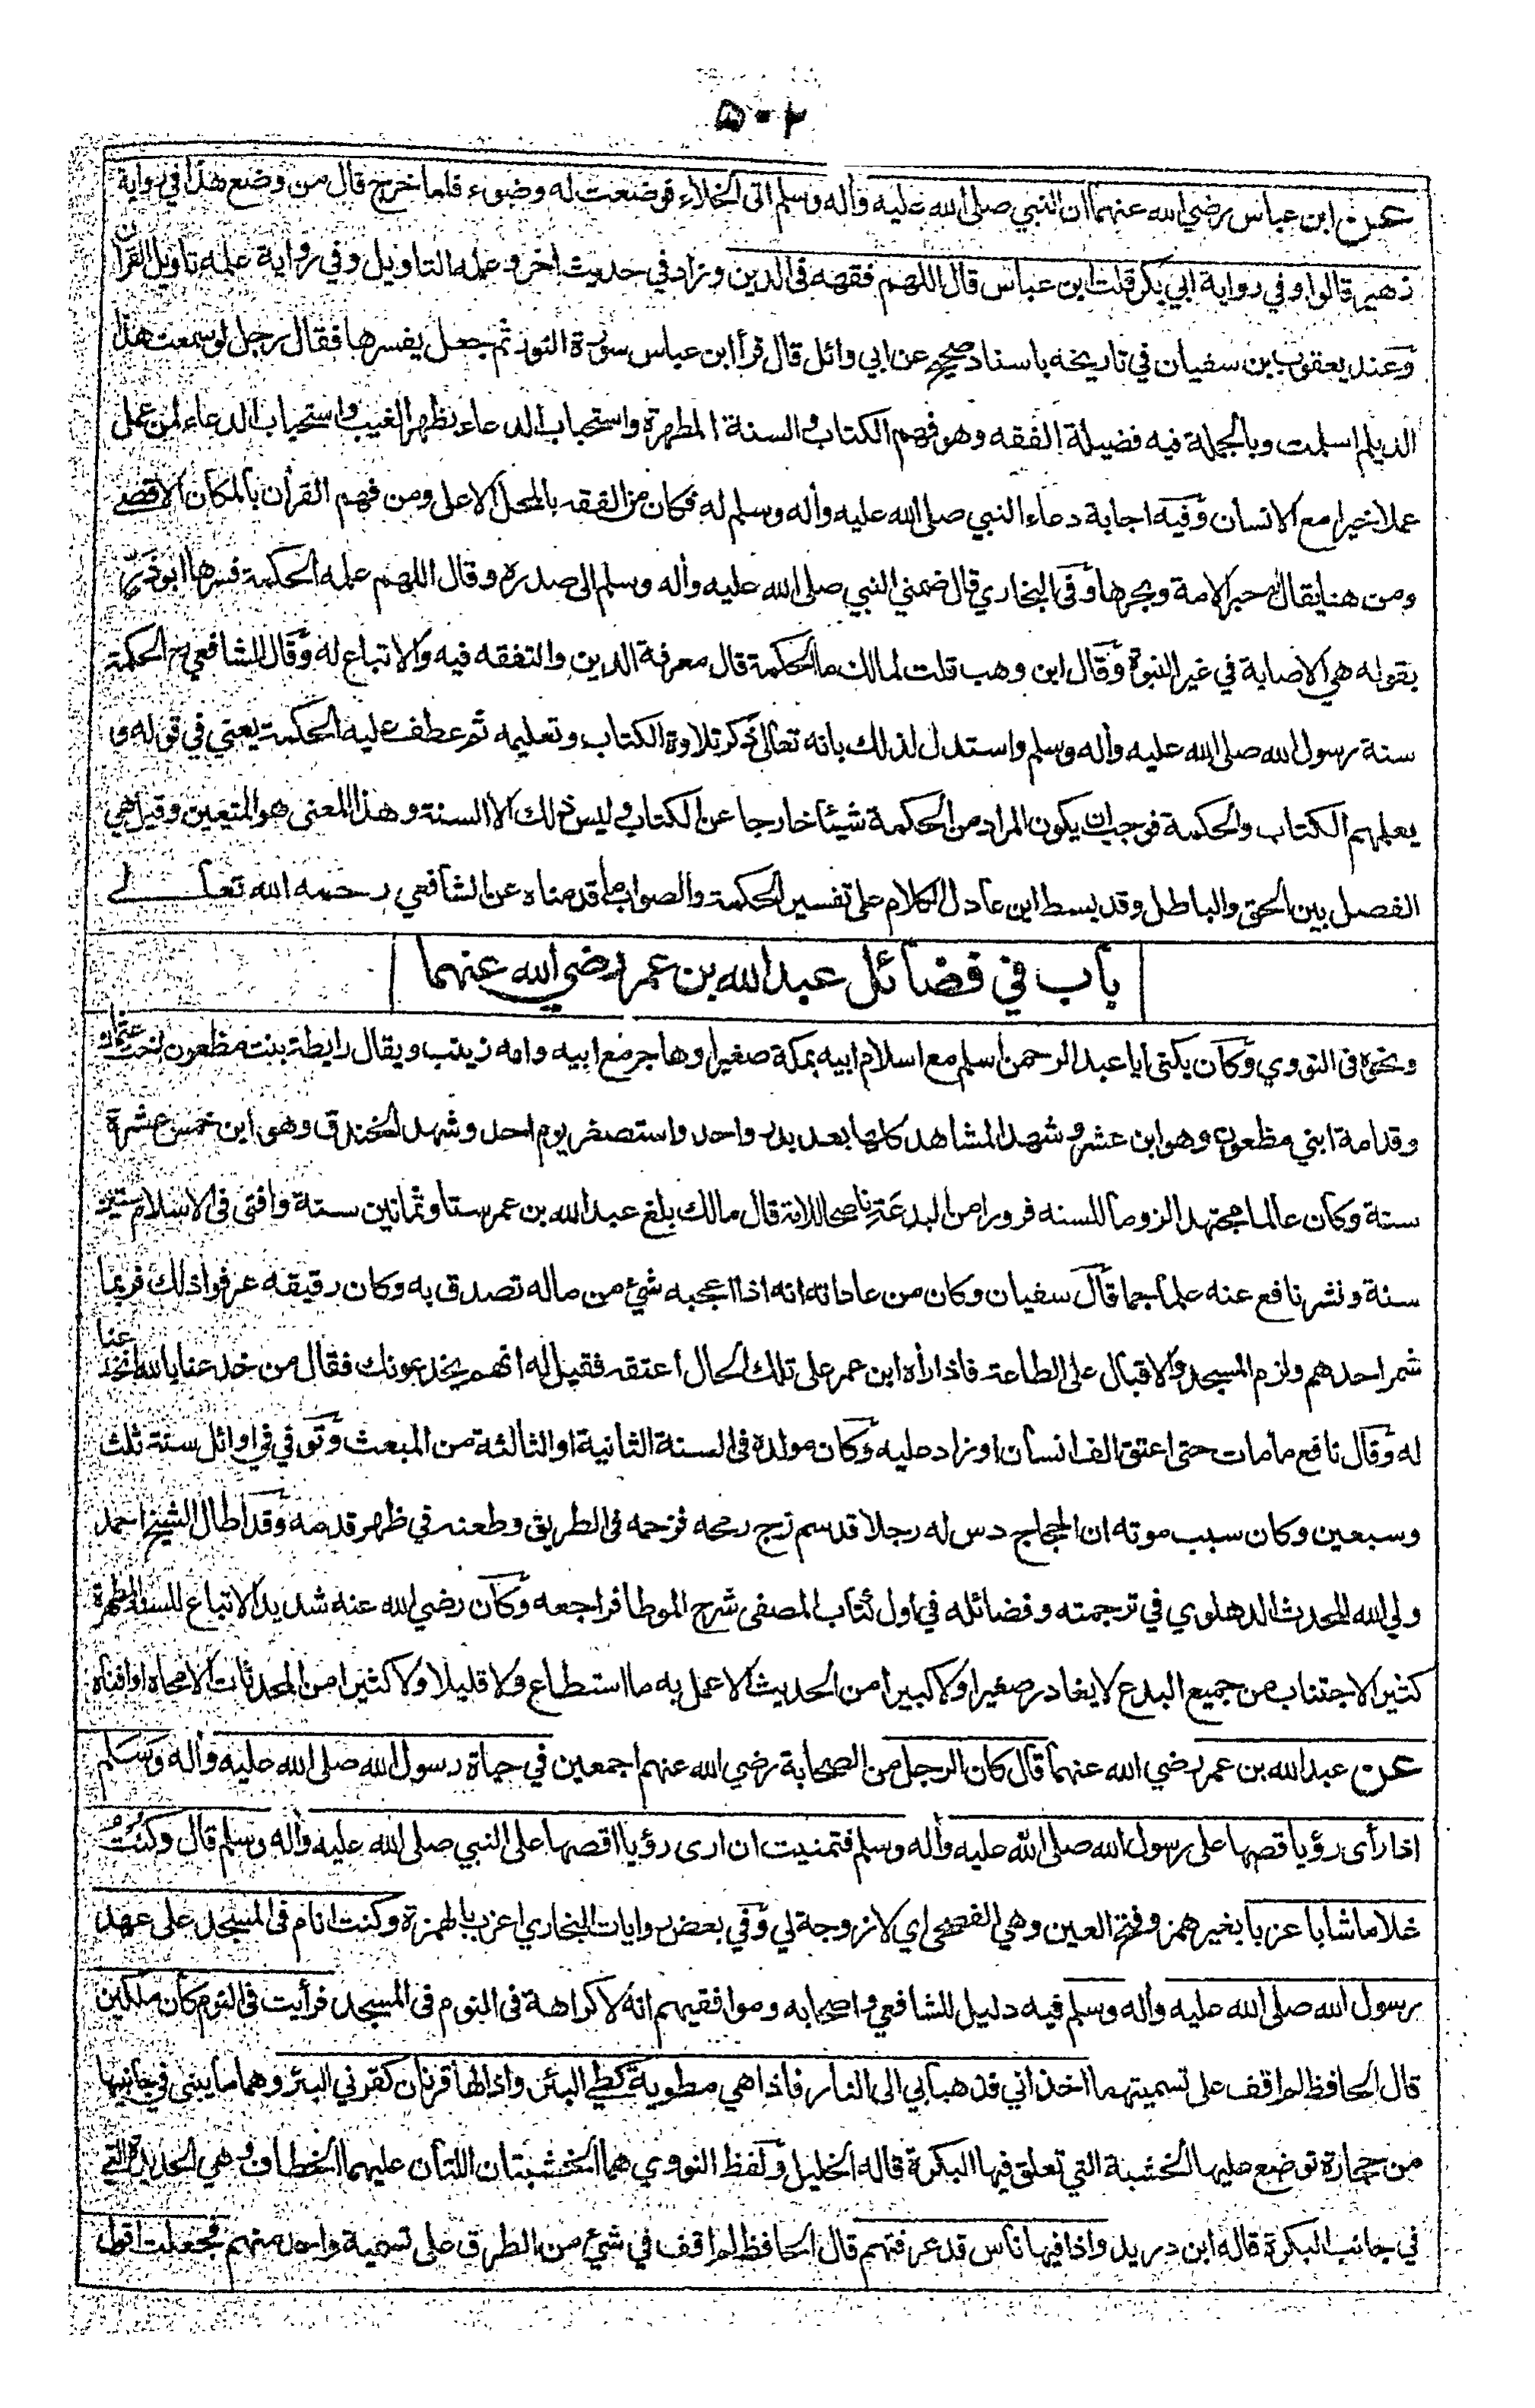 ٥٠٢
عن ابن عباس رضي الله عنهما أن النبي صلى الله عليه وأله وسلم اتى الخلاء فوضعت له وضوء فلما خرج قال من وضع هذا في رواية
زهير قالوا وفي رواية ابي بكر قلت ابن عباس قال اللهم فقهه فى الدين وزاد في حديث اخر وعلمه التاويل وفي رواية علمه تاويل القرأن
وعند يعقوب بن سفيان في تاريخه باسناد صحيح عن ابي وائل قال قرأ ابن عباس سورة النور ثم جعل يفسرها فقال رجل لو سمعت هذا
الديلم اسلمت وبالجملة فيه فضيلة الفقه وهو فهم الكتاب والسنة المطهرة واستحباب الدعاء بظهر الغيب واستحباب الدعاء لمن عمل
عملا خيرا مع الانسان وفيه اجابة دعاء النبي صلى الله عليه وأله وسلم له فكان من الفقه بالمحل الاعلى ومن فهم القرأن بالمكان الاقصى
ومن هنا يقال له حبر الامة وبحرها وفى البخاري قال ضمني النبي صلى الله عليه وأله وسلم الى صدره وقال اللهم علمه الحكمة فسرها ابو ذر
بقوله هي الاصابة في غير النبوة وقال ابن وهب قلت لمالك ما الحكمة قال معرفة الدين والتفقه فيه والاتباع له وقال الشافعي رح الحكمة
سنة رسول الله صلى الله عليه وأله وسلم واستدل لذلك بانه تعالى ذكر تلاوة الكتاب وتعليمه ثم عطف عليه الحكمة يعني في قوله و
يعلمهم الكتاب والحكمة فوجب ان يكون المراد من الحكمة شيئا خارجا عن الكتاب وليس ذلك الا السنة وهذا المعنى هو المتعين وقيل هي
الفصل بين الحق والباطل وقد بسط ابن عادل الكلام على تفسير الحكمة والصواب ما قدمناه عن الشافعي رحمه الله تعالى
باب في فضائل عبد الله بن عمر رضي الله عنهما
ونحوه فى النووي وكان يكنى ابا عبد الرحمن اسلم مع اسلام ابيه بمكة صغيرا وهاجر مع ابيه وامه زينب ويقال رابطة بنت مظعون اخت عثمان
وقدامة ابني مظعون وهو ابن عشر وشهد المشاهد كلها بعد بدر واحد واستصغر يوم احد وشهد الخندق وهو ابن خمس عشرة
سنة وكان عالما مجتهدا لزوما للسنه فرورا من البدعة ناصحا للامة قال مالك بلغ عبد الله بن عمر ستا وثمانين سنة وافتى فى الاسلام ستين
سنة ونشر نافع عنه علما جما قال سفيان وكان من عاداته انه اذا اعجبه شيء من ماله تصدق به وكان رقيقه عرفوا ذلك فربما
شمر احدهم ولزم المسجد والاقبال على الطاعة فاذا رأه ابن عمر على تلك الحال أعتقه فقيل له انهم يخدعونك فقال من خدعنا بالله انخدعنا
له وقال نافع ما مات حتى اعتق الف انسان او زاد عليه وكان مولده فى السنة الثانية او الثالثة من المبعث وتوفي في اوائل سنة ثلث
وسبعين وكان سبب موته ان الحجاج دس له رجلا قد سم زج رمحه فزحمه فى الطريق وطعنه في ظهر قدمه وقد اطال الشيخ احمد
ولي الله المحدث الدهلوي في ترجمته وفضائله في اول كتاب المصفى شرح الموطا فراجعه وكان رضي الله عنه شديد الاتباع للسنة المطهرة
كثير الاجتناب من جميع البدع لا يغادر صغيرا ولا كبيرا من الحديث الا عمل به ما استطاع ولا قليلا ولا كثيرا من المحدثات الا محاه او افناه
عن عبد الله بن عمر رضي الله عنهما قال كان الرجل من الصحابة رضي الله عنهم اجمعين في حياة رسول الله صلى الله عليه وأله وسلم
اذا رأى رؤيا قصها على رسول الله صلى الله عليه وأله وسلم فتمنيت ان ارى رؤيا اقصها على النبي صلى الله عليه وأله وسلم قال وكنت
غلاما شابا عزبا بغير همز وفتح العين وهي الفصحى اي لا زوجة لي وفي بعض روايات البخاري اعزب بالهمزة وكنت انام فى المسجد على عهد
رسول الله صلى الله عليه وأله وسلم فيه دليل للشافعي واصحابه وموافقيهم انه لا كراهة فى النوم فى المسجد فرأيت فى النوم كأن ملكين
قال الحافظ لم اقف على تسميتهما اخذاني فذهبا بي الى النار فاذا هي مطوية كطي البئر واذا لها قرنان كقرني البئر وهما ما يبنى في جانبيها
من حجارة توضع عليها الخشبة التي تعلق فيها البكرة قاله الخليل ولفظ النووي هما الخشبتان اللتان عليهما الخطاف وهي الحديدة التي
في جانب البكرة قاله ابن دريد واذا فيها ناس قد عرفتهم قال الحافظ لم اقف في شيء من الطرق على تسمية واحد منهم فجعلت اقول